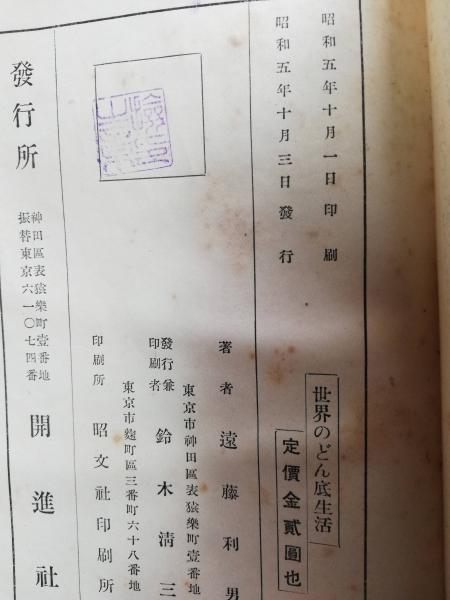 昭和五年十月一日印刷
昭和五年十月三日發行
世界のどん底生活
定價金貳圓也
著者 遠藤利男
東京市神田區表猿樂町壹番地
發行兼印刷者 鈴木淸三
東京市麴町區三番町六十八番地
印刷所 昭文社印刷所
發行所
神田區表猿樂町壹番地
振替東京六一〇七四番
開進社